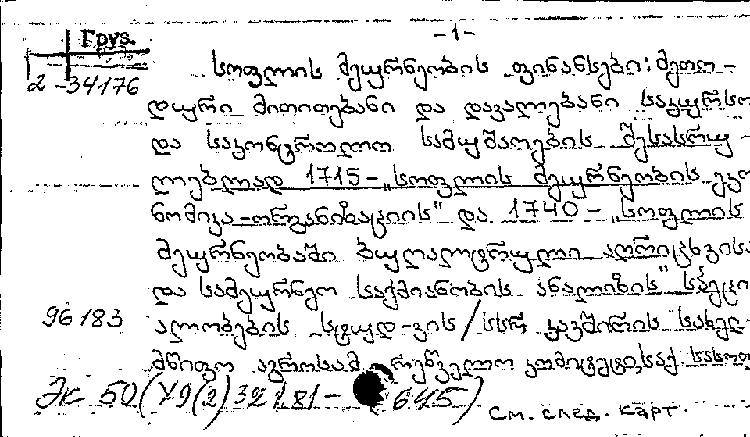 -1-
Груз.
2-34176
სოფლის მეურნეობის ფინანსები: მეთო-
დური მითითებანი და დავალებანი საკურსო
და საკონტროლო სამუშაოების შესასრუ-
ლებლად 1715-„სოფლის მეურნეობის ეკო
ნომიკა-ორგანიზაციის" და 1740-„სოფლის
მეურნეობაში ბუღალტრული აღრიცხვისა
და სამეურნეო საქმიანობის ანალიზის" სპეცი
96183
ალობების სტუდ-ვის/სსრ კავშირის სახელ-
მწიფო აგროსამ რეწველო კომიტეტი, საკ. სასოფ
ЭК 50(У9(2)32 я81- 645)
См. след. карт.